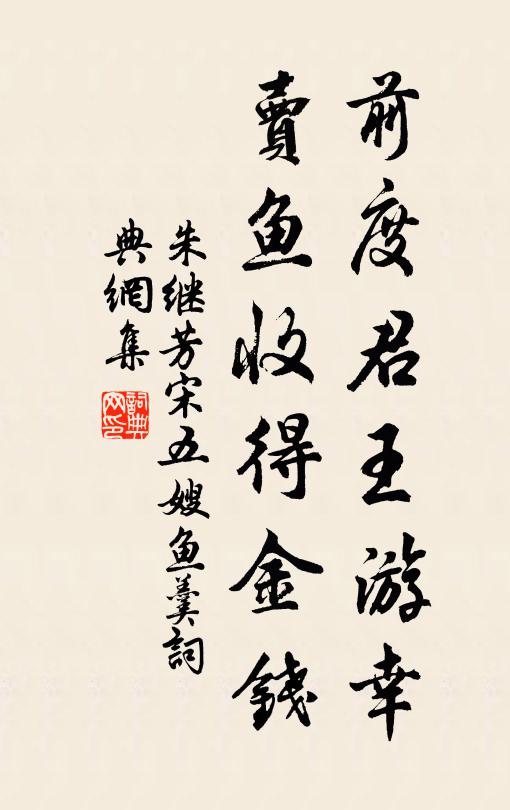 前度君王游幸
賣鱼收得金錢
朱继芳宋五嫂鱼羹詞
典網集
詞典網印